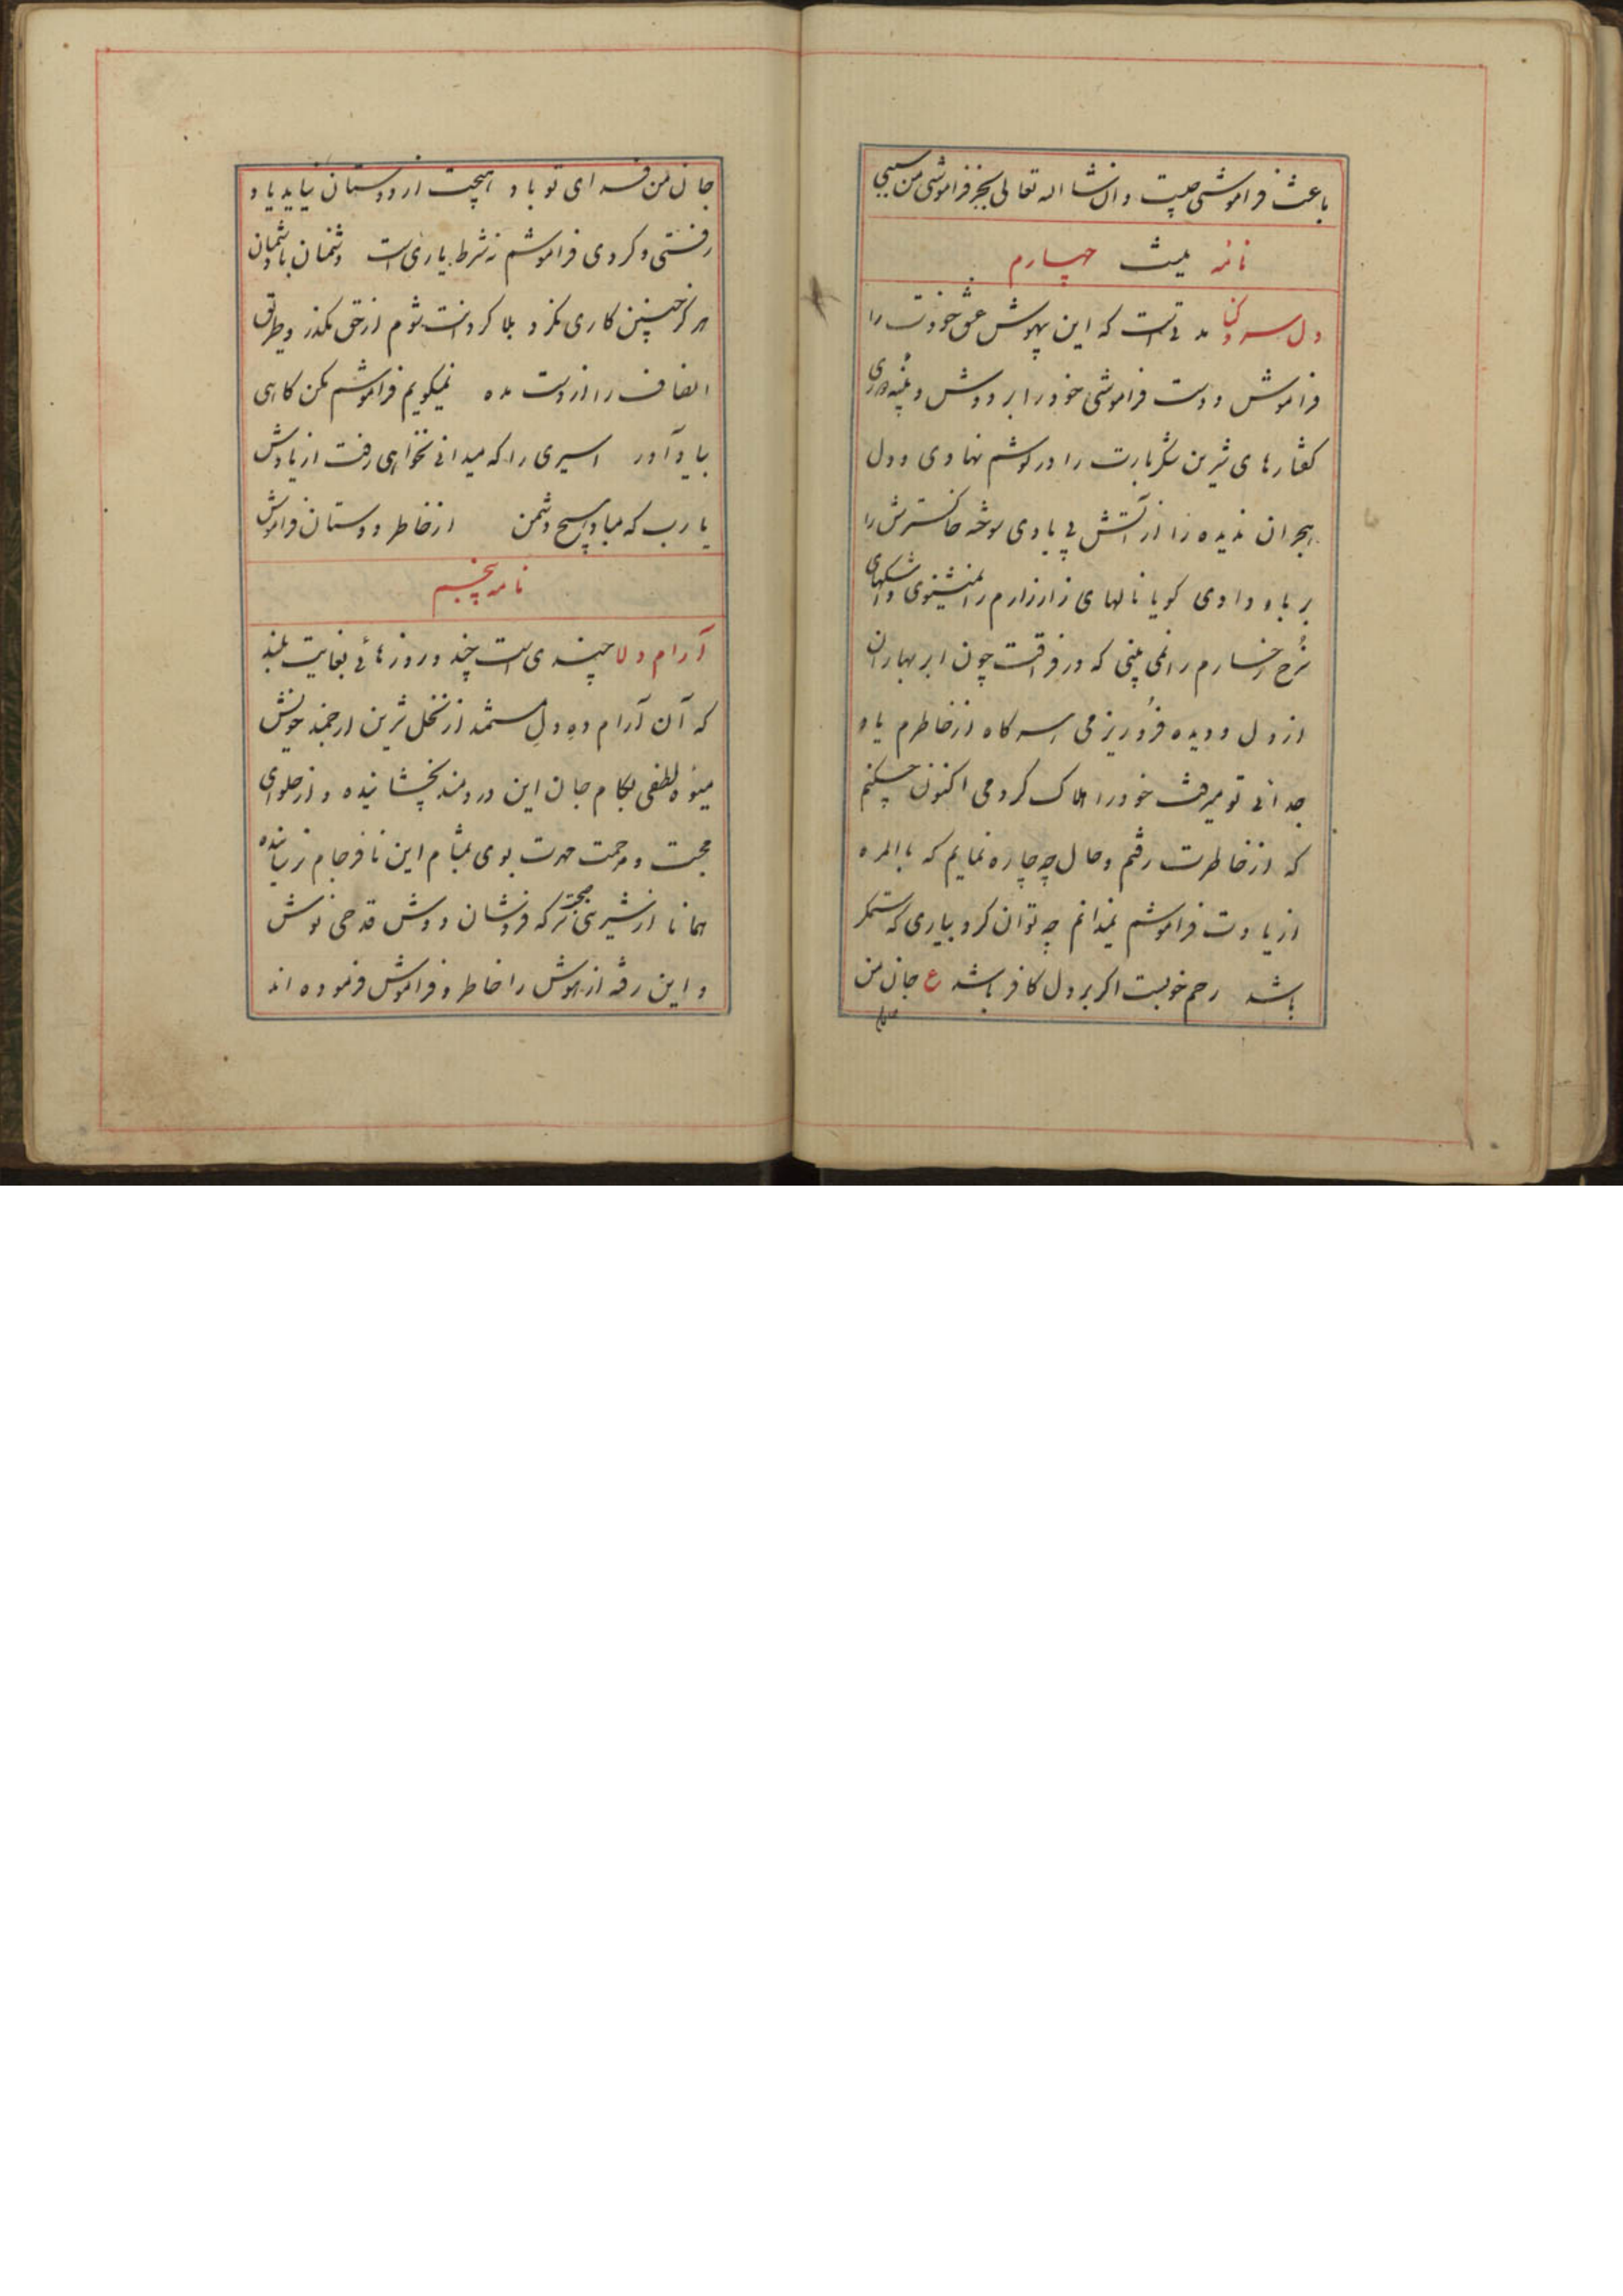 باعث فراموشی چیست و ان شا اله تعالی بجز فراموشی من سببی
نامه چهارم
دل سرد کنا مدتی است که این بیهوش عشق خودت را
فراموش و دست فراموشی خود را بر دوش و پنبه دوری
کفتارهای شیرین شکربارت را در کوشم نهادی و دل
هجران ندیده را از آتش بی یادی سوخته خاکسترش را
بر باد دادی کویا نالهای زار زارم را نمیشنوی و اشکهای
سرخ رخسارم را نمی بینی که در فراقت چون ابر بهاران
از دل و دیده فرو ریزمی اسر کاه از خاطرم یاد
جدائی تو میرفت خود را هلاک کردمی اکنون چکنم
که از خاطرت رفتم و حال چه چاره نمایم که بالمره
از یادت فراموشم نمیدانم چه توان کرد بیاری که ستمکر
باشد رحم خوبست اکر بر دل کافر باشد ع جان من
جان من فدای تو باد هیچت از دوستان نیاید یاد
رفتی و کردی فراموشم نه شرط یاری است دشمنان با دشمنان
هرکز چنین کاری نکرد بلا کردانت شوم از حق مکذر و طریق
انصاف را از دست مده نمیکویم فراموشم مکن کاهی
بیاد آور اسیری را که میدانی نخواهی رفت از یادش
یا رب که مباد هیچ دشمن از خاطر دوستان فراموش
نامه پنجم
آرام دلا چندی است چند و روزهائی بغایت بلند
که آن آرام ده دل مستمند از نخل شیرین ارجمند خویش
میوه لطفی بکام جان این دردمند نچشانیده و از حلوای
محبت و مرحمت مهرت بوی بمشام این نافرجام نرسانده
همانا از شیری محبت سرکه فروشان دوش قدحی نوش
و این رفته از هوش را خاطر و فراموش فرموده اند